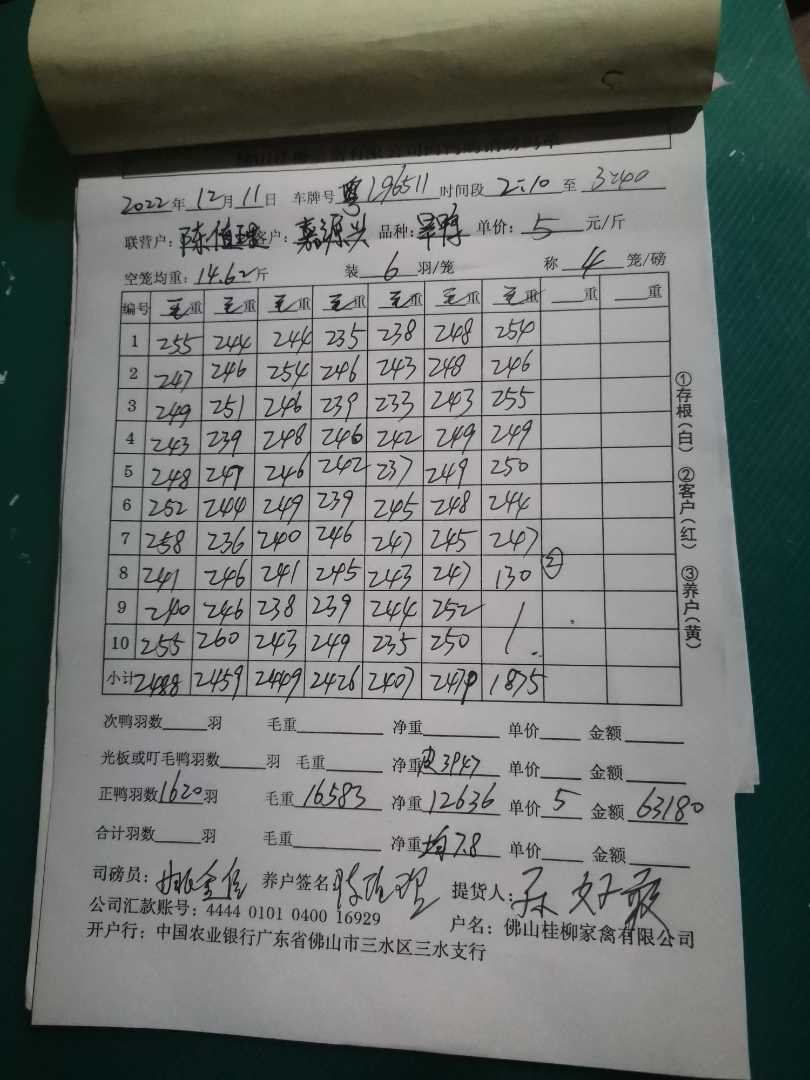 2022年12月11日 车牌号粤196511 时间段2:10至3:40
联营户：陈伯理 客户：嘉源兴 品种：旱鸭 单价：5元/斤
空笼均重：14.62斤 装6羽/笼 称4笼/磅
编号 毛重 毛重 毛重 毛重 毛重 毛重 毛重 重 重
1 255 244 244 235 238 248 254
2 247 246 254 246 243 248 246
3 249 251 246 239 233 243 255
4 243 239 248 246 242 249 249
5 248 247 246 242 237 249 250
6 252 244 249 239 245 248 244
7 258 236 240 246 247 245 247
8 241 246 241 245 243 247 130 ②
9 240 246 238 239 244 252 /
10 255 260 243 249 235 250 /
小计 2488 2459 2449 2426 2407 2479 1875
次鸭羽数 羽 毛重 净重 单价 金额
光板或叮毛鸭羽数 羽 毛重 净重皮3947 单价 金额
正鸭羽数1620羽 毛重16583 净重12636 单价5 金额63180
合计羽数 羽 毛重 净重均7.8 单价 金额
司磅员： 养户签名 陈伯理 提货人：
公司汇款账号：4444 0101 0400 16929 户名：佛山桂柳家禽有限公司
开户行：中国农业银行广东省佛山市三水区三水支行
①存根（白） ②客户（红） ③养户（黄）